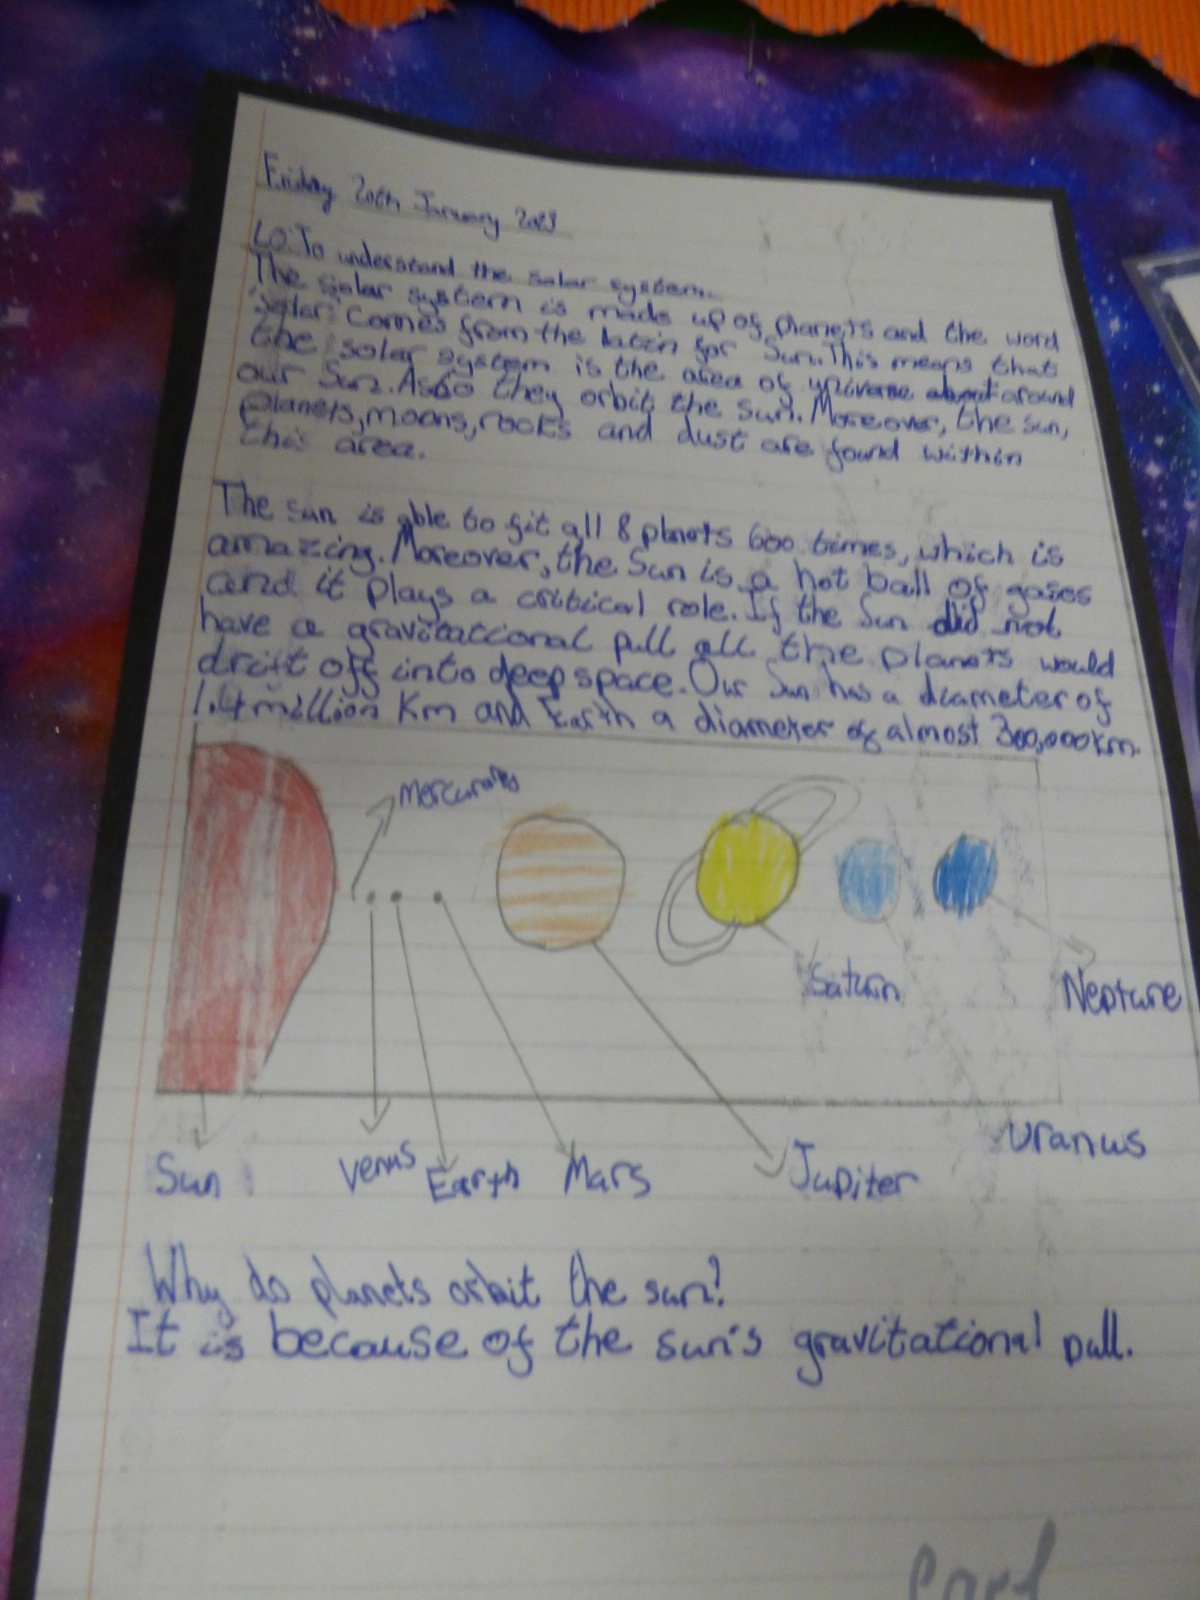 Friday 20th January 2023
LO: To understand the solar system.
The solar system is made up of planets and the word
'Solar' comes from the latin for Sun. This means that
the solar system is the area of universe about around
our Sun. Also they orbit the sun. Moreover, the sun,
planets, moons, rocks and dust are found within
this area.
The sun is able to fit all 8 planets 600 times, which is
amazing. Moreover, the Sun is a hot ball of gases
and it plays a critical role. If the Sun did not
have a gravitational pull all the planets would
drift off into deep space. Our Sun has a diameter of
1.4 million Km and Earth a diameter of almost 300,000km.
Saturn
Neptune
Uranus
Sun
Venus
Earth
Mars
Jupiter
Why do planets orbit the sun?
It is because of the sun's gravitational pull.